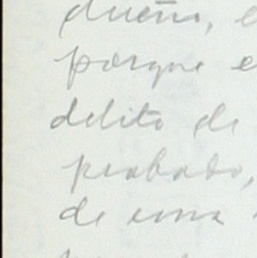 dueño,
porque
delito de
probado,
de una